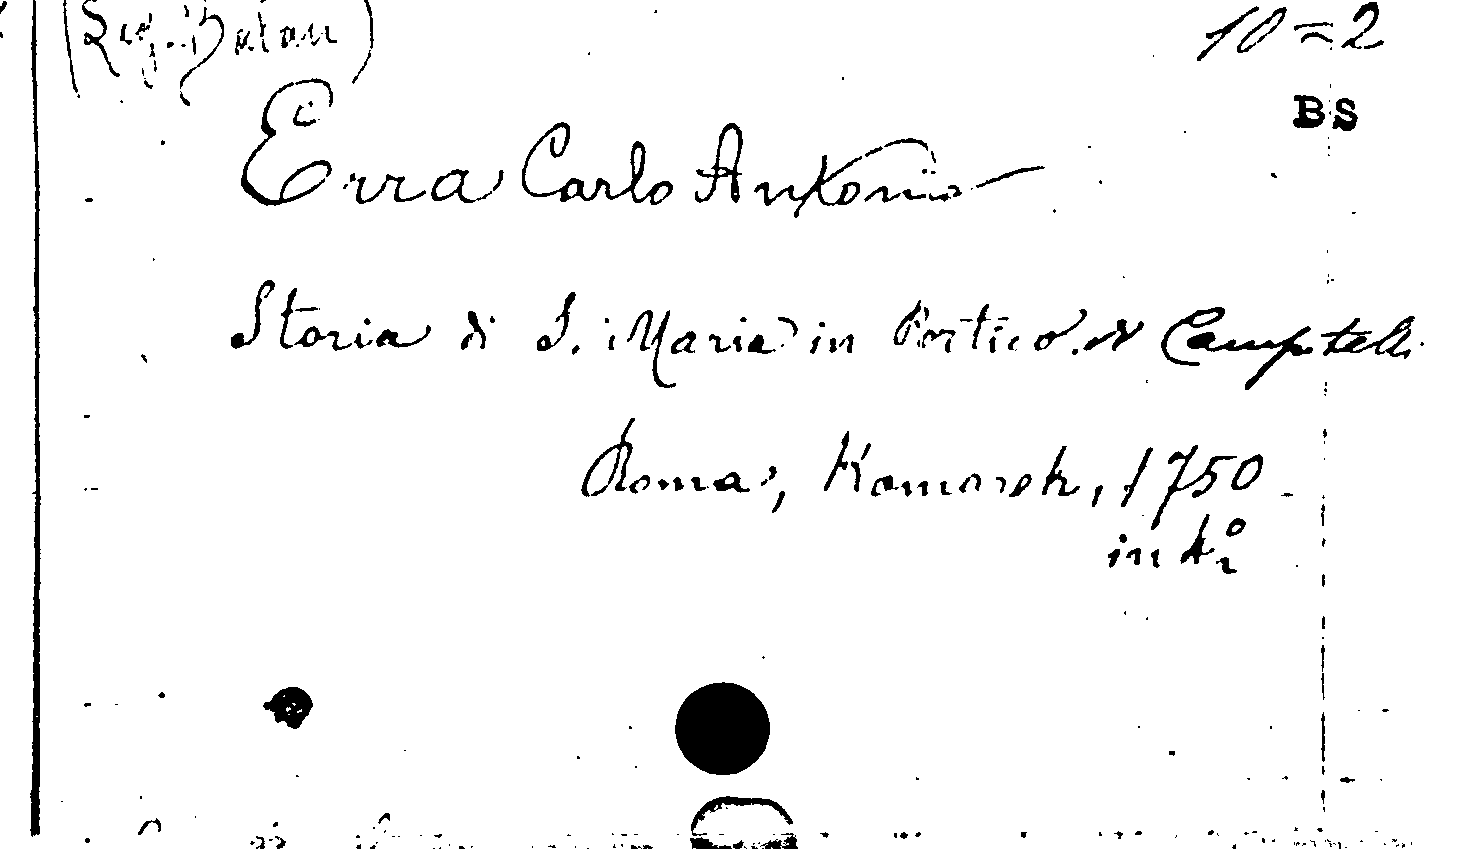 10=2
BS
Erra Carlo Antonio
Storia di S. Maria in Portico di Campitelli
Roma, Komarek, 1750
in 4º